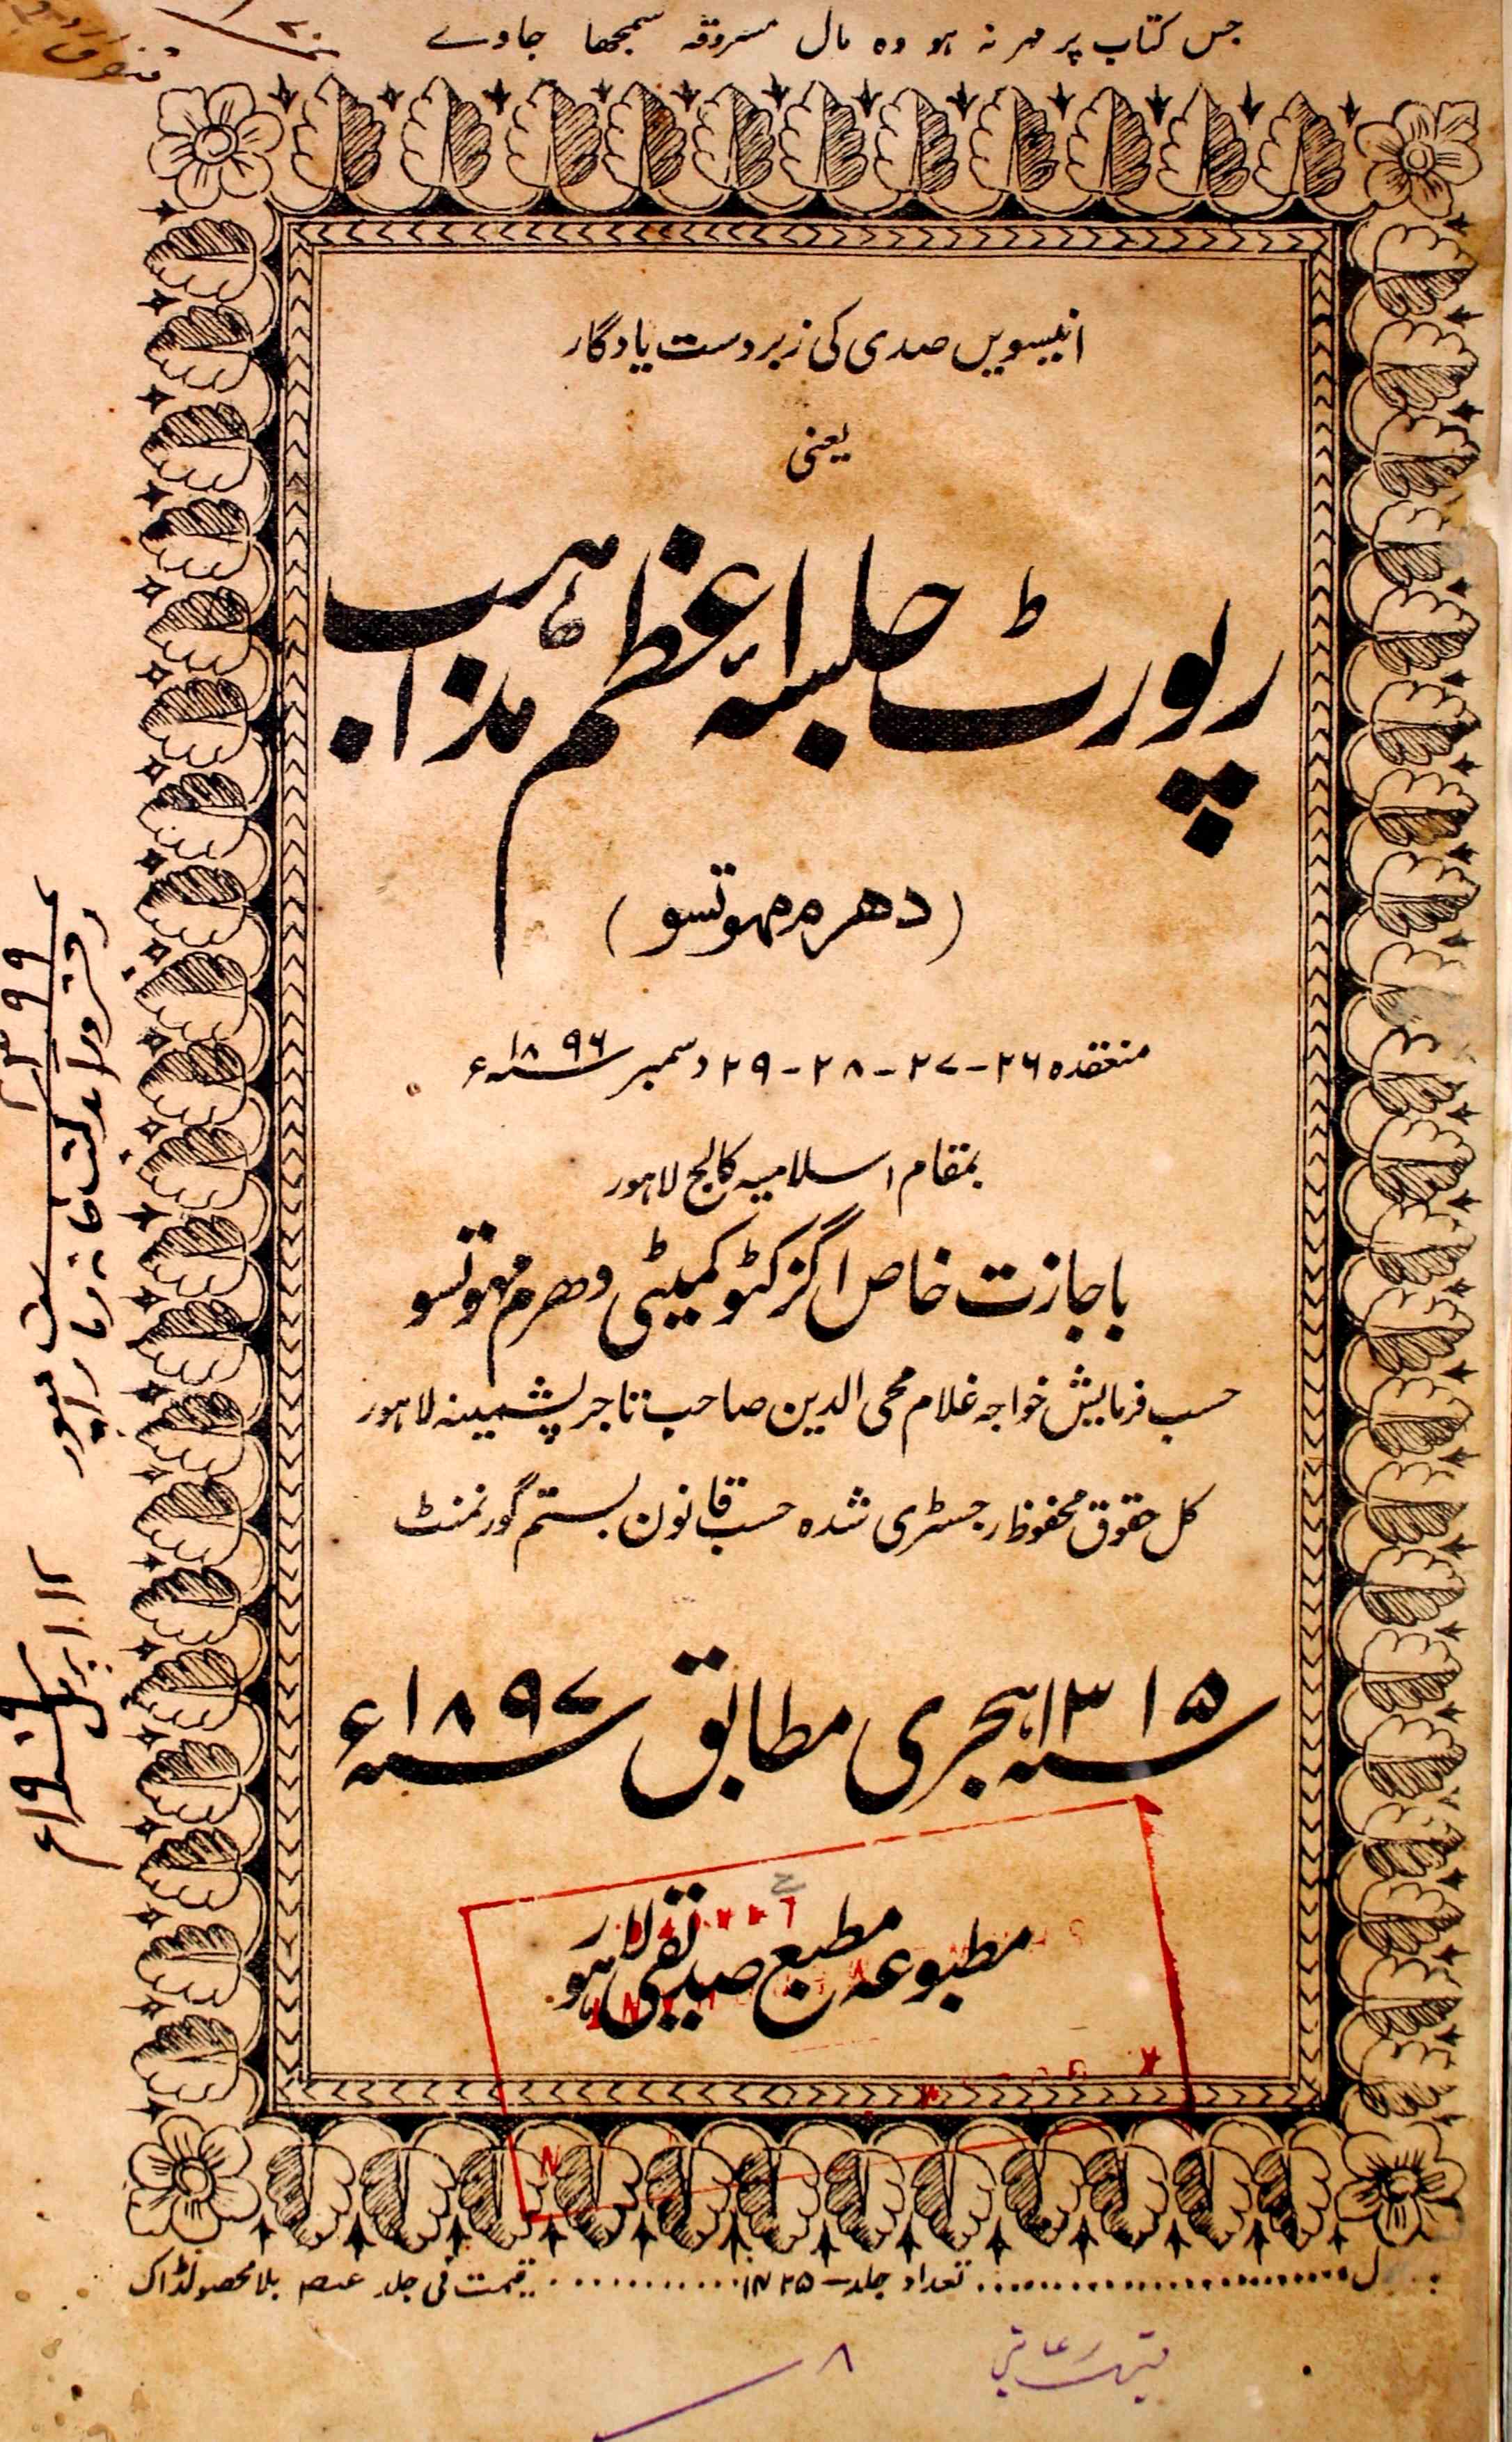 جس کتاب پر مہر نہ ہو وہ مال مسروقہ سمجھا جاوے
انیسویں صدی کی زبردست یادگار
یعنی
رپورٹ جلسہ اعظم مذاہب
(دھرم مہوتسو)
منعقدہ ۲۶-۲۷-۲۸-۲۹ دسمبر ۱۸۹۶ء
بمقام اسلامیہ کالج لاہور
باجازت خاص اگزکٹو کمیٹی دھرم مہوتسو
حسب فرمایش خواجہ غلام محی الدین صاحب تاجر پشمینہ لاہور
کل حقوق محفوظ رجسٹری شدہ حسب قانون بستم گورنمنٹ
۱۳۱۵ ہجری مطابق ۱۸۹۷ء
مطبوعہ مطبع صدیقی لاہور
تعداد جلد ........... قیمت فی جلد عہ بلا محصولڈاک
قیمت رعایتی ۸